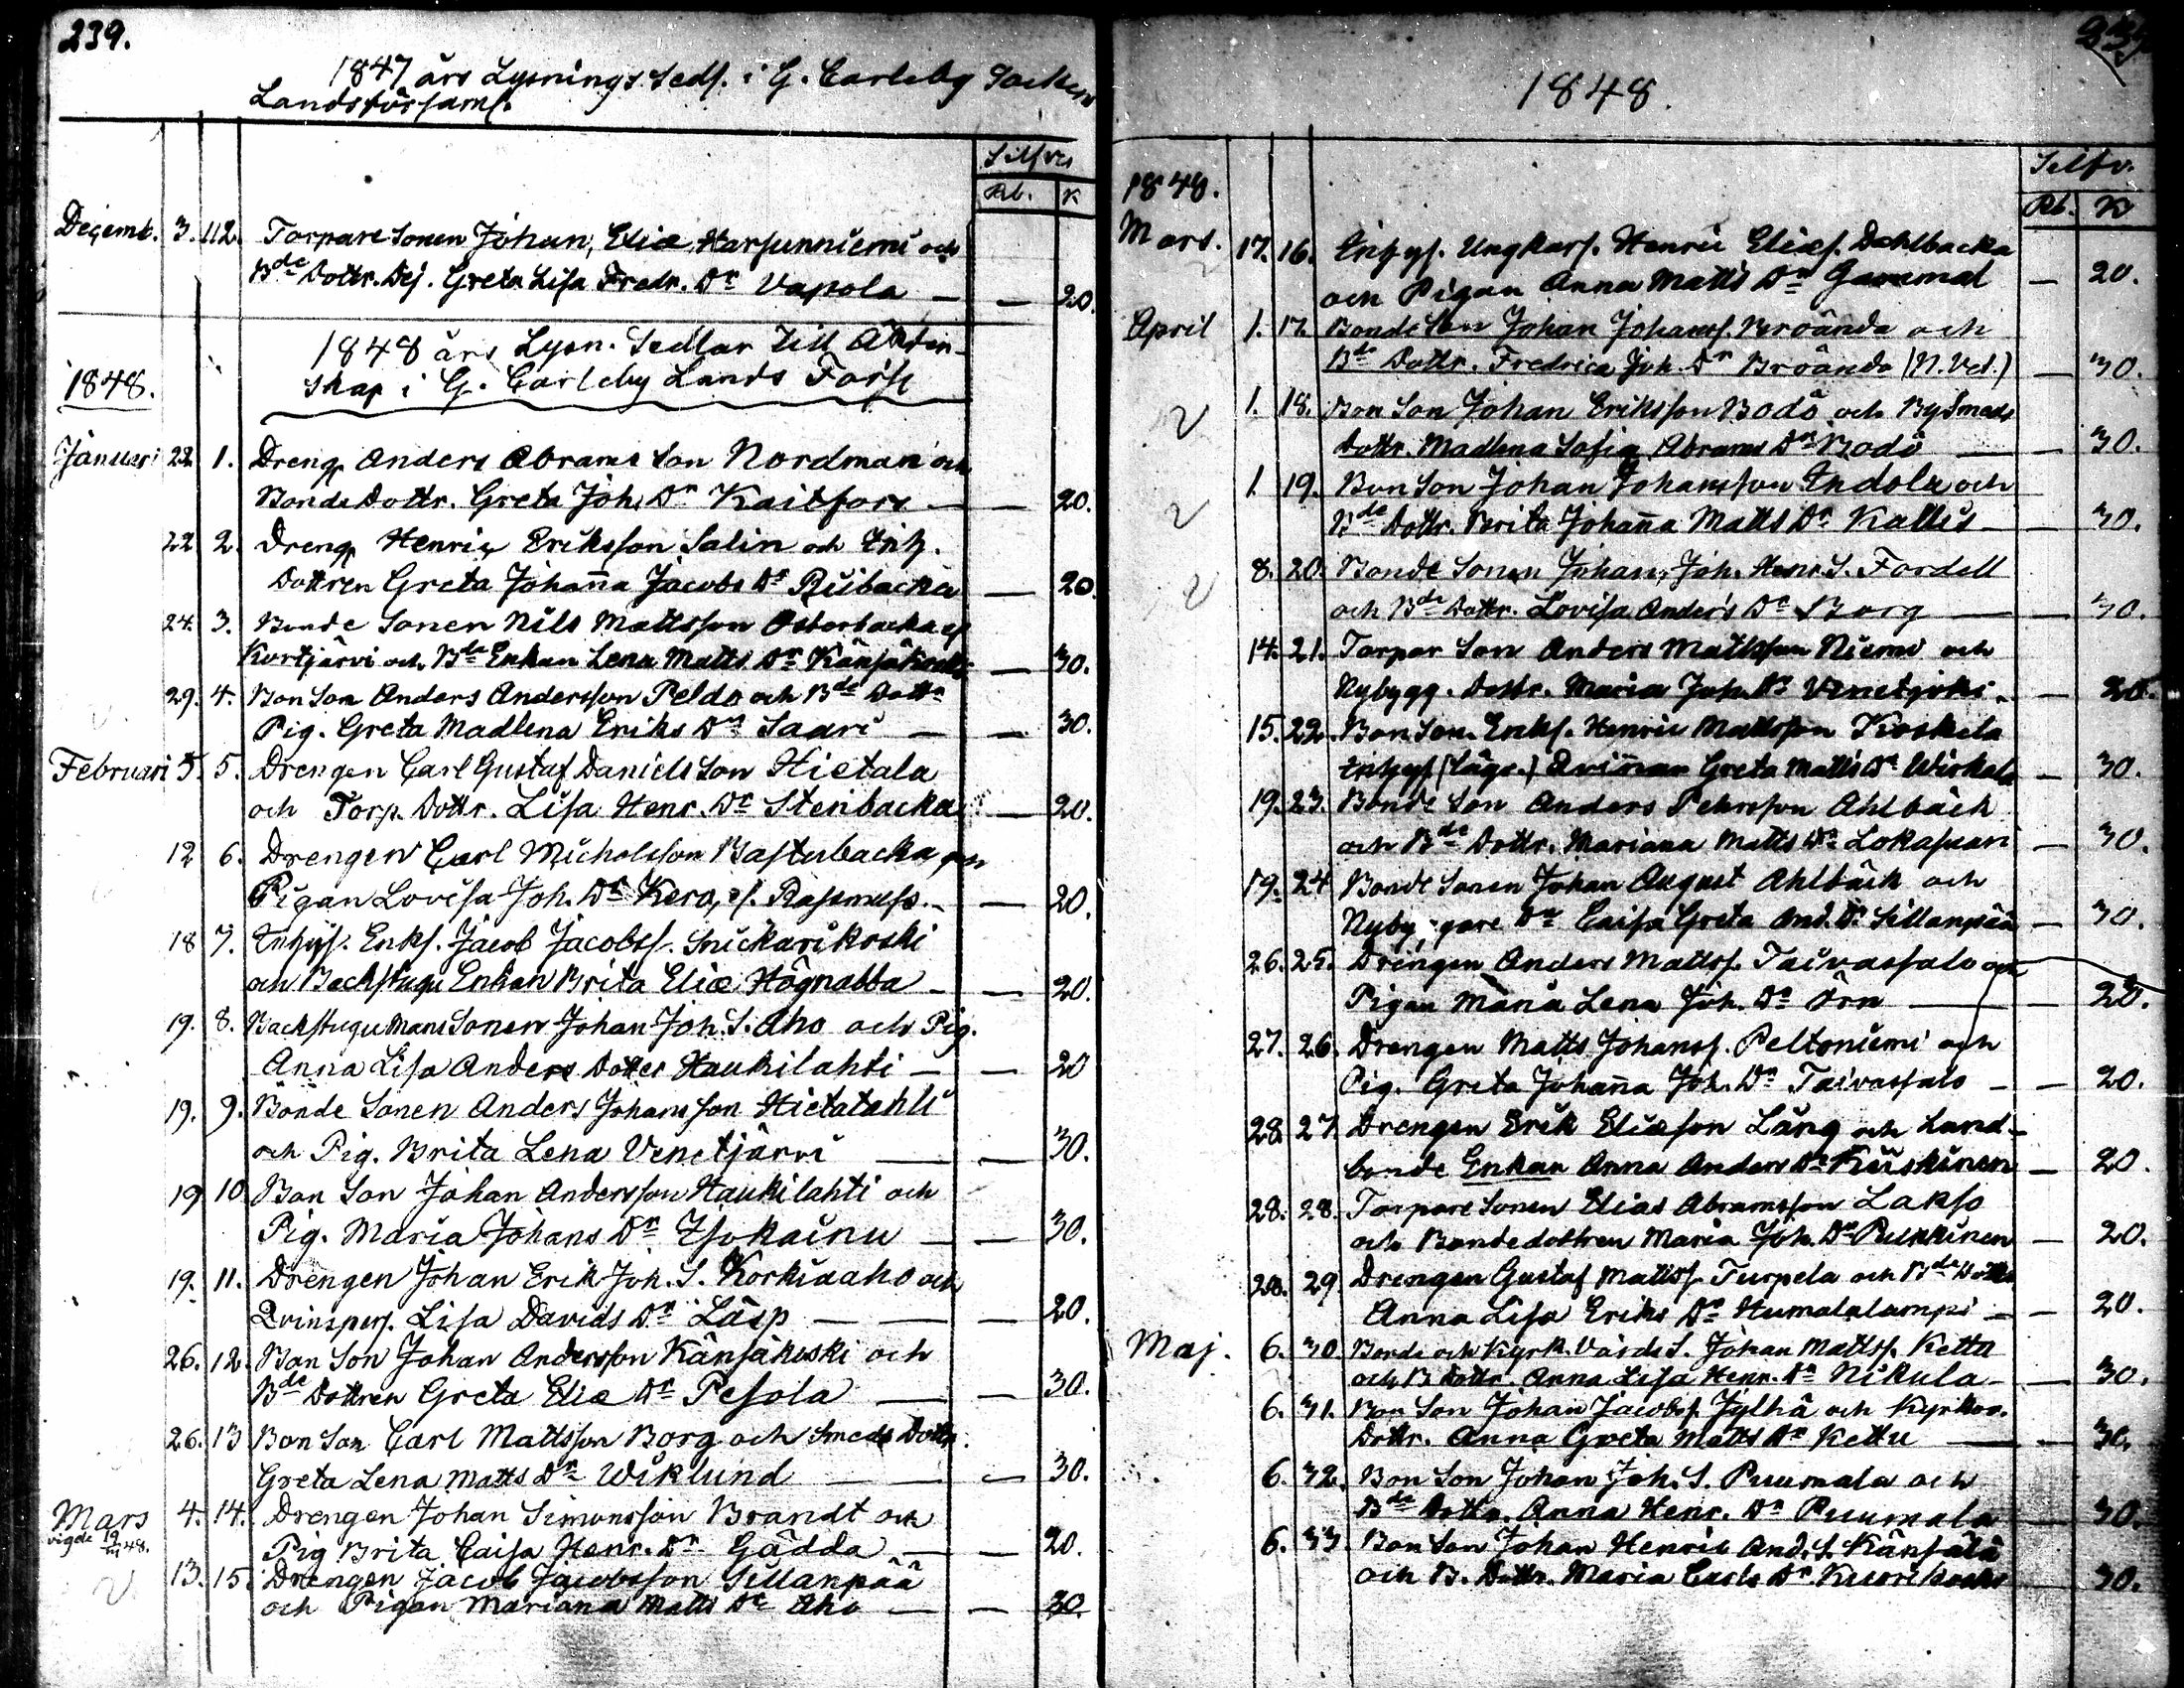 239.
1847 års Lysnings Sedl. i G. Carleby Socken
Landsförsaml.
Silfver
Rb. K
Decemb. 3. 112. Torpare Sonen Johan, Eliæ Harjunniemi och
Bde Dottr. Dej. Greta Lisa Fredr. Dr Vapola — — 20.
1848 års Lysn. Sedlar till Äkten-
skap i G. Carleby Lands Förs.
1848.
Januari 22 1. Dreng Anders Abrams Son Nordman och
Bonde Dottr. Greta Joh. Dr Kaitfors — — 20.
22 2. Dreng Henric Eriksson Salin och Inh.
Dottren Greta Johanna Jacobs Dr Riibacka — 20.
24. 3. Bonde Sonen Nils Mattsson Österbacka ef
Kortjärvi och Bde Enkan Lena Matts Dr Känsäkoski — 30.
29. 4. Bon Son Anders Andersson Peldo och Bde Dottr
Pig. Greta Madlena Eriks Dr Saari — — 30.
Februari 5. 5. Drengen Carl Gustaf Daniels Son Hietala
och Torp. Dottr. Lisa Henr. Dr Stenbacka — 20.
12 6. Drengen Carl Michelsson Bastubacka och
Pigan Lovisa Joh. Dr Kero, ef. Rasmuss. — — 20.
18 7. Inhys. Enkl. Jacob Jacobss. Snickarikoski
och Backstugu Enkan Brita Eliæ Högnabba — — 20.
19. 8. Backstugu Mans Sonen Johan Joh. S. Aho och Pig.
Anna Lisa Anders Dotter Haukilahti — — 20
19. 9. Bonde Sonen Anders Johans Son Hietatahti
och Pig. Brita Lena Venetjärvi — — 30.
19 10 Bon Son Johan Andersson Haukilahti och
Pig. Maria Johans Dr Isokainu — — 30.
19. 11. Drengen Johan Erik Joh. S. Korkiaaho och
Qvinspers. Lisa Davids Dr Läsp — — — 20.
26. 12. Bon Son Johan Andersson Känsäkoski och
Bde Dottren Greta Eliæ Dr Pesola — — 30.
26. 13 Bon Son Carl Mattsson Borg och Smeds Dottr.
Greta Lena Matts Dr Wiklund — — 30.
Mars 4. 14. Drengen Johan Simonsson Brandt och
vigde 19/11 48. Pig Brita Caisa Henr. Dr Gädda — — 20.
13. 15. Drengen Jacob Jacobsson Sillanpää
och Pigan Mariana Matts Dr Aho — — 20
1848.
Silfv.
1848. Rb. K
Mars. 17. 16. Inhys. Ungkarl. Henric Eliæs. Dahlbacka
och Pigan Anna Matts Dr Gammal — 20.
April 1. 17. Bonde Son Johan Johanss. Broända och
Bde Dottr. Fredrica Joh. Dr Broända (N. Vet.) — 30.
1. 18. Bon Son Johan Eriksson Bodö och By Smeds
Dottr. Madlena Sofia Abrams Dr Bodö — — 30.
1. 19. Bon Son Johan Johansson Indola och
Bde Dottr. Brita Johanna Matts Dr Kallis — — 30.
8. 20. Bonde Sonen Johan, Joh. Henr. S. Fordell
och Bde Dottr. Lovisa Anders Dr Borg — — 30.
14. 21. Torpar Son Anders Mattsson Niemi och
Nybygg. Dottr. Maria Joh. Dr Venetjoki — — 20.
15. 22. Bon Son. Enkl. Henric Mattsson Koskela
Inhys (läge.) Qvinnan Greta Matts Dr Wirkala — 30.
19. 23. Bonde Son Anders Pehrsson Ahlbäck
och Bde Dottr. Mariana Matts Dr Lokasaari — 30.
19. 24 Bonde Sonen Johan August Ahlbäck och
Nybyggare Dr Caisa Greta And. Dr Sillanpää — 30.
26. 25. Drengen Anders Mattss. Taivassalo och
Pigan Maria Lena Joh. Dr Örn — — 20.
27. 26. Drengen Matts Johanss. Peltoniemi och
Pig. Greta Johanna Joh. Dr Taivassalo — — 20.
28. 27. Drengen Erik Eliæson Lång och Land-
bonde Enkan Anna Anders Dr Kiiskinen — 20.
28. 28. Torpare Sonen Elias Abramsson Lakso
och Bondedottren Maria Joh. Dr Pulkkinen — 20.
28. 29 Drengen Gustaf Mattss. Turpela och Bde Dottr
Anna Lisa Eriks Dr Humalalampi — — 20.
Maj. 6. 30. Bonde och Kyrk. Värds S. Johan Mattss. Kettu
och B Dottr. Anna Lisa Henr. Dr Nikula — 30.
6. 31. Bon Son Johan Jacobss. Jylhä och Kyrkov.
Dottr. Anna Greta Matts Dr Kettu — — 30.
6. 32. Bon Son Johan Joh. S. Puumala och
Bde Dottr. Anna Henr. Dr Puumala — 30.
6. 33. Bon Son Johan Henric And. S. Känsälä
och B. Dottr. Maria Carls Dr Kuorikoski 30.